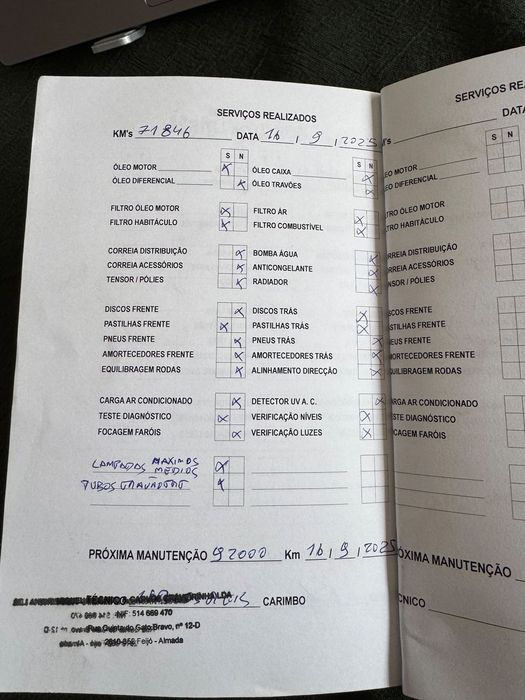 SERVIÇOS REALIZADOS
KM's 71846 DATA 16 / 9 / 2025
S N
S N
ÓLEO MOTOR ÓLEO CAIXA
ÓLEO DIFERENCIAL ÓLEO TRAVÕES
FILTRO ÓLEO MOTOR FILTRO ÁR
FILTRO HABITÁCULO FILTRO COMBUSTÍVEL
CORREIA DISTRIBUIÇÃO BOMBA ÁGUA
CORREIA ACESSÓRIOS ANTICONGELANTE
TENSOR / PÓLIES RADIADOR
DISCOS FRENTE DISCOS TRÁS
PASTILHAS FRENTE PASTILHAS TRÁS
PNEUS FRENTE PNEUS TRÁS
AMORTECEDORES FRENTE AMORTECEDORES TRÁS
EQUILIBRAGEM RODAS ALINHAMENTO DIRECÇÃO
CARGA AR CONDICIONADO DETECTOR UV A. C.
TESTE DIAGNÓSTICO VERIFICAÇÃO NÍVEIS
FOCAGEM FARÓIS VERIFICAÇÃO LUZES
LAMPADAS MAXIMOS
MEDIOS
TUBOS
PRÓXIMA MANUTENÇÃO 92000 Km 16 / 9 / 2025
TÉCNICO CARIMBO
NIF: 514 669 470
Gato Bravo, nº 12-D
Feijó - Almada
SERVIÇOS RE
DATA
's
S N
EO MOTOR
EO DIFERENCIAL
TRO ÓLEO MOTOR
TRO HABITÁCULO
RREIA DISTRIBUIÇÃO
RREIA ACESSÓRIOS
NSOR / PÓLIES
SCOS FRENTE
STILHAS FRENTE
EUS FRENTE
MORTECEDORES FRENTE
UILIBRAGEM RODAS
RGA AR CONDICIONADO
STE DIAGNÓSTICO
CAGEM FARÓIS
ÓXIMA MANUTENÇÃO
CNICO